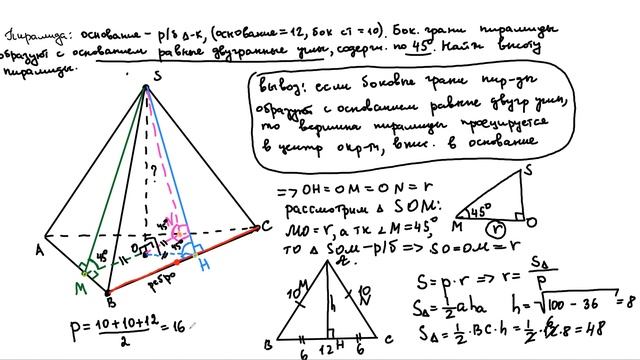 Пирамида: основание - р/б Δ-к, (основание = 12, бок ст = 10). Бок. грани пирамиды
образуют с основанием равные двугранные углы, содерж. по 45°. Найти высоту
пирамиды.
Вывод: если боковые грани пир-ды
образуют с основанием равные двугр углы,
то вершина пирамиды проецируется
в центр окр-ти, впис. в основание
S
?
N
45°
O
45°
45°
45°
A
M
B
H
C
ребро
p = (10+10+12)/2 = 16
=> OH = OM = ON = r
рассмотрим Δ SOM:
MO = r, а тк ∠M = 45°,
то Δ SOM - р/б => SO = OM = r
S
M
45°
O
r
A
M
N
10
10
h
B
6
12
H
6
C
S = p·r => r = SΔ/p
SΔ = 1/2 a ha
h = √100 - 36 = 8
SΔ = 1/2 · BC · h = 1/2 · 12 · 8 = 48
6